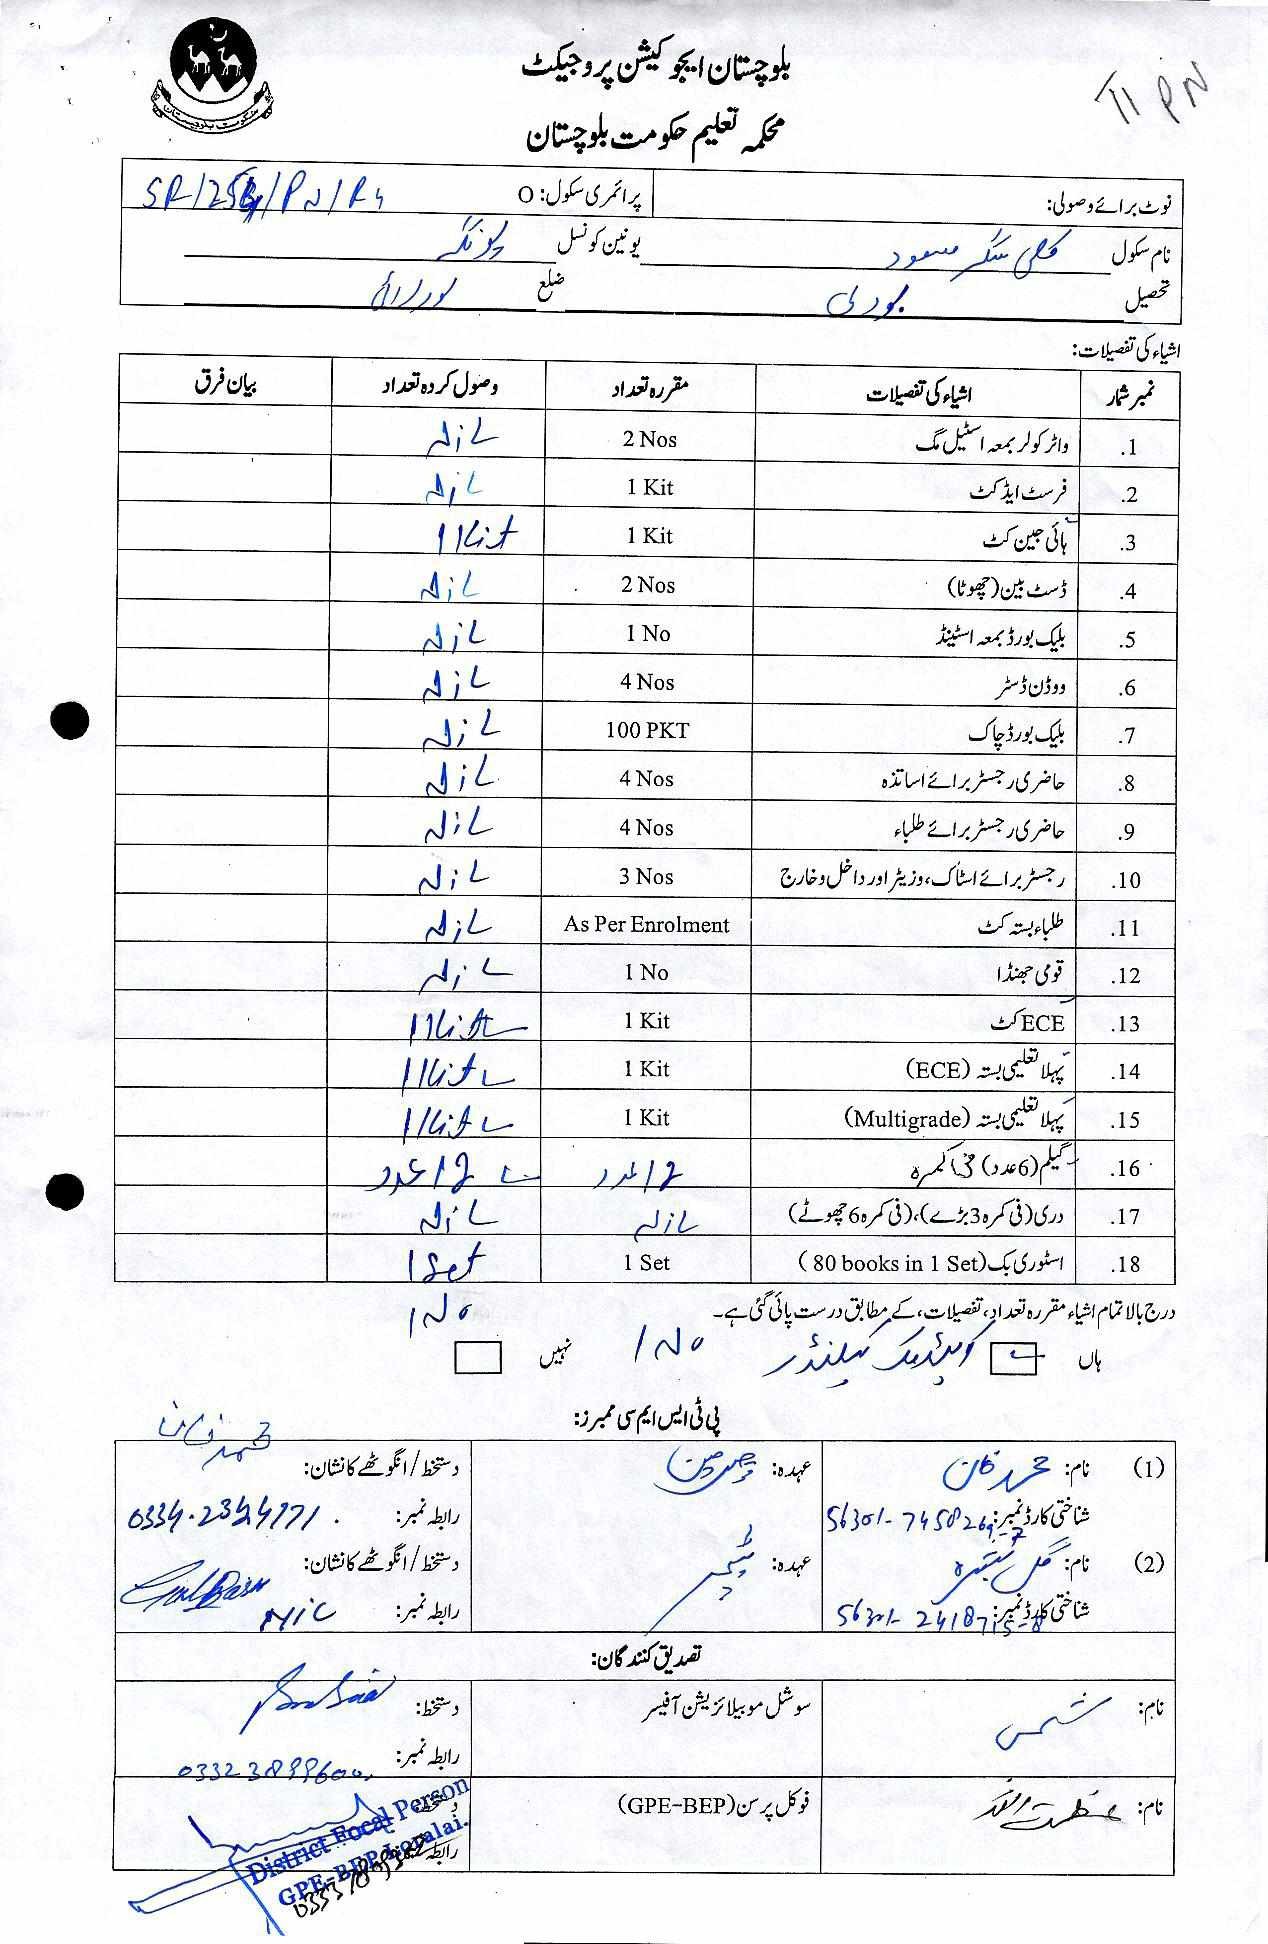 بلوچستان ایجوکیشن پروجیکٹ
محکمہ تعلیم حکومت بلوچستان
حکومت بلوچستان
PN
نوٹ برائے وصولی: پرائمری سکول: O
نام سکول کلی مسعود یونین کونسل
تحصیل بوری ضلع لورالائی
اشیاء کی تفصیلات:
نمبر شمار اشیاء کی تفصیلات مقررہ تعداد وصول کردہ تعداد بیان فرق
1. واٹر کولر بمعہ اسٹیل مگ 2 Nos
2. فرسٹ ایڈ کٹ 1 Kit
3. ہائی جین کٹ 1 Kit 1 Kit
4. ڈسٹ بین (چھوٹا) 2 Nos
5. بلیک بورڈ بمعہ اسٹینڈ 1 No
6. ووڈن ڈسٹر 4 Nos
7. بلیک بورڈ چاک 100 PKT
8. حاضری رجسٹر برائے اساتذہ 4 Nos
9. حاضری رجسٹر برائے طلباء 4 Nos
10. رجسٹر برائے اسٹاک، وزیٹر اور داخل و خارج 3 Nos
11. طلباء بستہ کٹ As Per Enrolment
12. قومی جھنڈا 1 No
13. ECE کٹ 1 Kit 1 Kit
14. پہلا تعلیمی بستہ (ECE) 1 Kit 1 Kit
15. پہلا تعلیمی بستہ (Multigrade) 1 Kit 1 Kit
16. گیلم (6 عدد) فی کمرہ 12 عدد 12 عدد
17. دری (فی کمرہ 3 بڑے)، (فی کمرہ 6 چھوٹے)
18. اسٹوری بک (80 books in 1 Set) 1 Set 1 Set
درج بالا تمام اشیاء مقررہ تعداد، تفصیلات، کے مطابق درست پائی گئی ہے۔
1 No
ہاں کیلنڈر 1 No نہیں
پی ٹی ایس ایم سی ممبرز:
(1) نام: محمد خان عہدہ: چیئرمین دستخط / انگوٹھے کا نشان: محمد خان
شناختی کارڈ نمبر: 56301-7458269-7 رابطہ نمبر: 0334-2344171
(2) نام: گل عہدہ: ٹیچر دستخط / انگوٹھے کا نشان:
شناختی کارڈ نمبر: 56301-2418715-8 رابطہ نمبر: Nil
تصدیق کنندگان:
نام: شمس سوشل موبیلائزیشن آفیسر دستخط:
رابطہ نمبر: 03323899600
نام: عظمت اللہ فوکل پرسن (GPE-BEP) دستخط
رابطہ
District Focal Person
GPE-BEP Loralai.